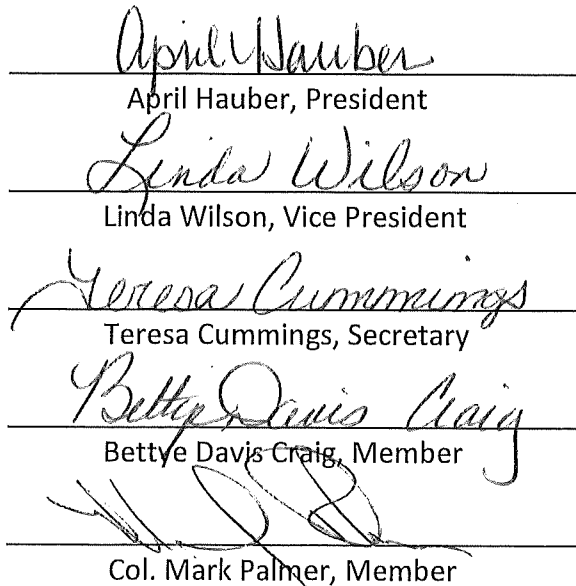 April Hauber
April Hauber, President
Linda Wilson
Linda Wilson, Vice President
Teresa Cummings
Teresa Cummings, Secretary
Bettye Davis Craig
Bettye Davis Craig, Member
Col. Mark Palmer, Member